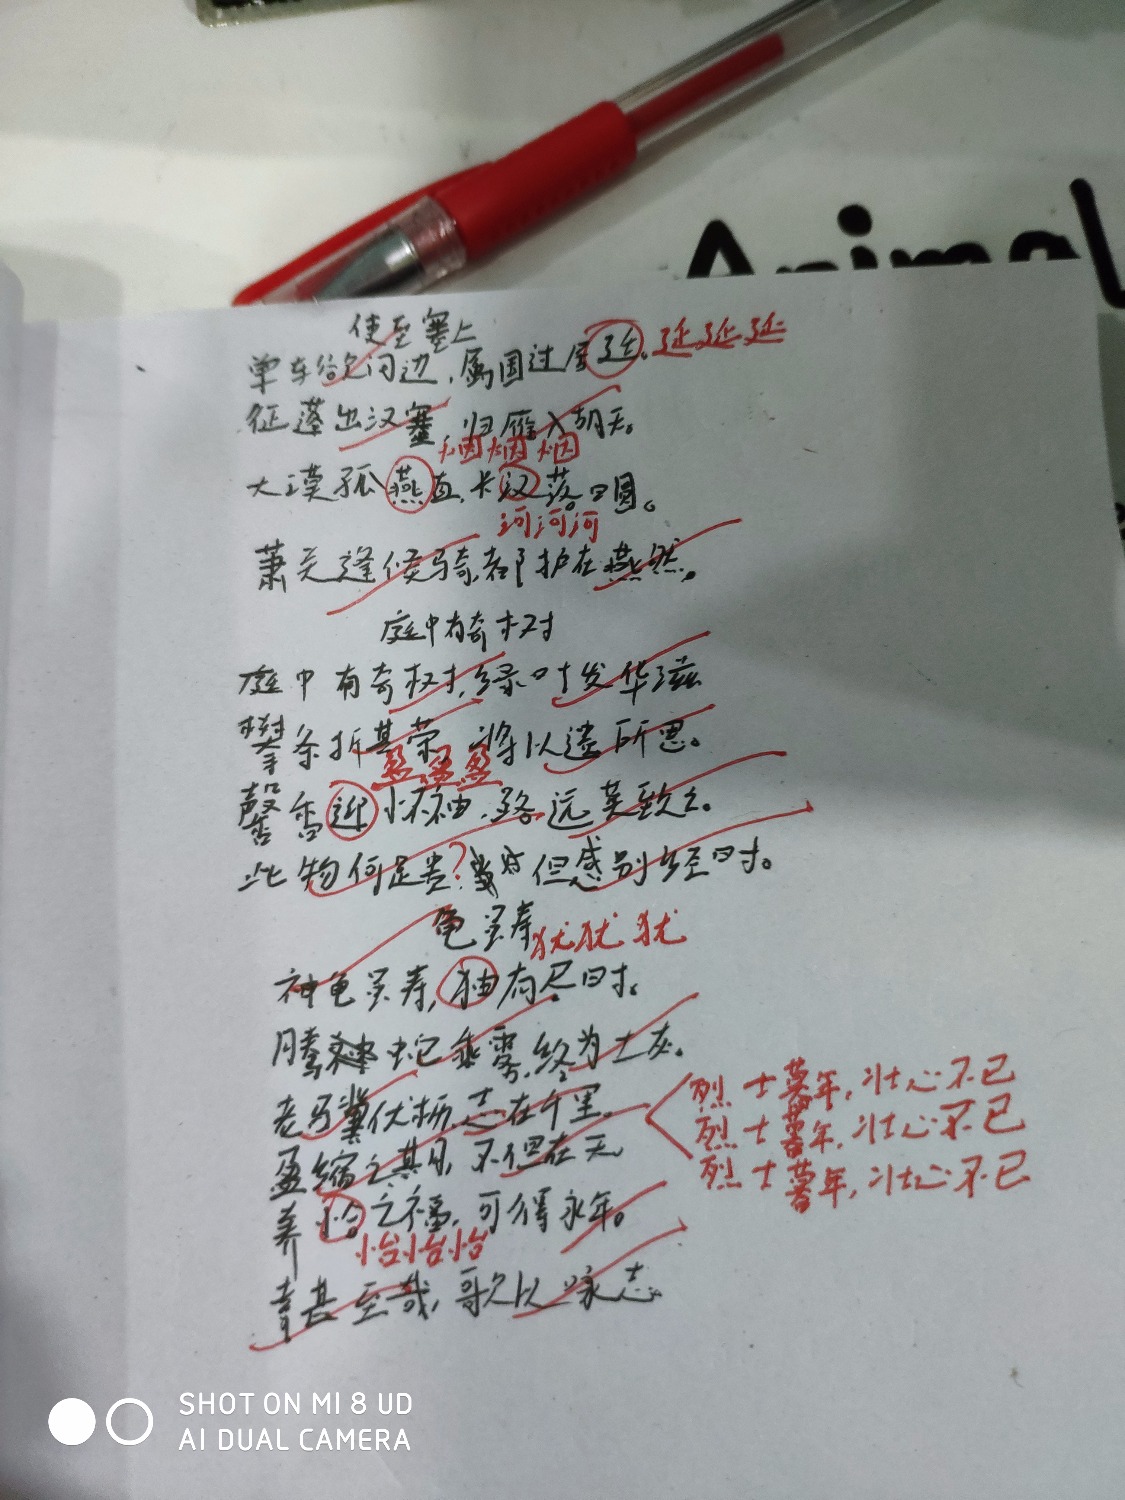 Animal
使至塞上
单车欲问边，属国过居延。延延延
征蓬出汉塞，归雁入胡天。
烟烟烟
大漠孤燕直，长汉落日圆。
河河河
萧关逢候骑，都护在燕然。
庭中有奇树
庭中有奇树，绿叶发华滋
攀条折其荣，将以遗所思。
盈盈盈
馨香迎怀袖，路远莫致之。
此物何足贵？但感别经时。
龟虽寿
犹犹犹
神龟虽寿，独有尽时。
腾蛇乘雾，终为土灰。
老马冀伏枥，志在千里。
烈士暮年，壮心不已
烈士暮年，壮心不已
烈士暮年，壮心不已
盈缩之其月，不但在天
养恰之福，可得永年。
怡怡怡
幸甚至哉，歌以咏志。
SHOT ON MI 8 UD
AI DUAL CAMERA